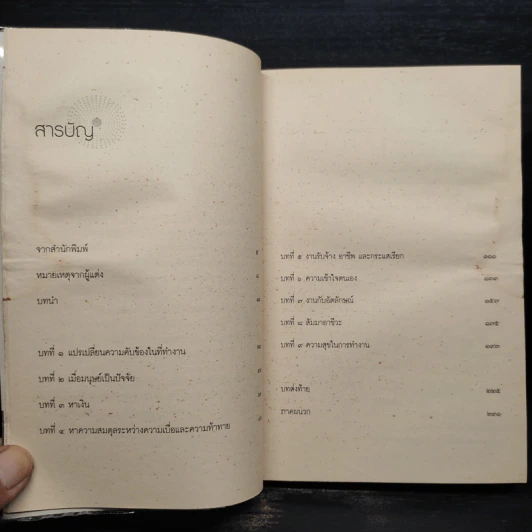 สารบัญ
จากสำนักพิมพ์
หมายเหตุจากผู้แต่ง
บทนำ
บทที่ ๑ แปรเปลี่ยนความคับข้องในที่ทำงาน
บทที่ ๒ เมื่อมนุษย์เป็นปัจจัย
บทที่ ๓ หาเงิน
บทที่ ๔ หาความสมดุลระหว่างความเบื่อและความท้าทาย
บทที่ ๕ งานรับจ้าง อาชีพ และกระแสเรียก ๑๑๑
บทที่ ๖ ความเข้าใจตนเอง ๑๓๓
บทที่ ๗ งานกับอัตลักษณ์ ๑๕๗
บทที่ ๘ สัมมาอาชีวะ ๑๗๕
บทที่ ๙ ความสุขในการทำงาน ๑๙๓
บทส่งท้าย ๒๒๕
ภาคผนวก ๒๓๑